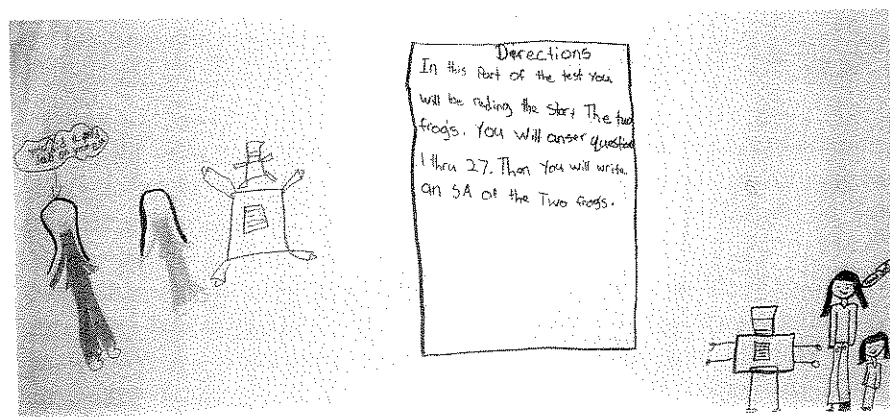 Derections
In this Part of the test you
will be reding the story The two
frogs. You will anser question
1 thru 27. Then You will write
an SA of the Two frogs.